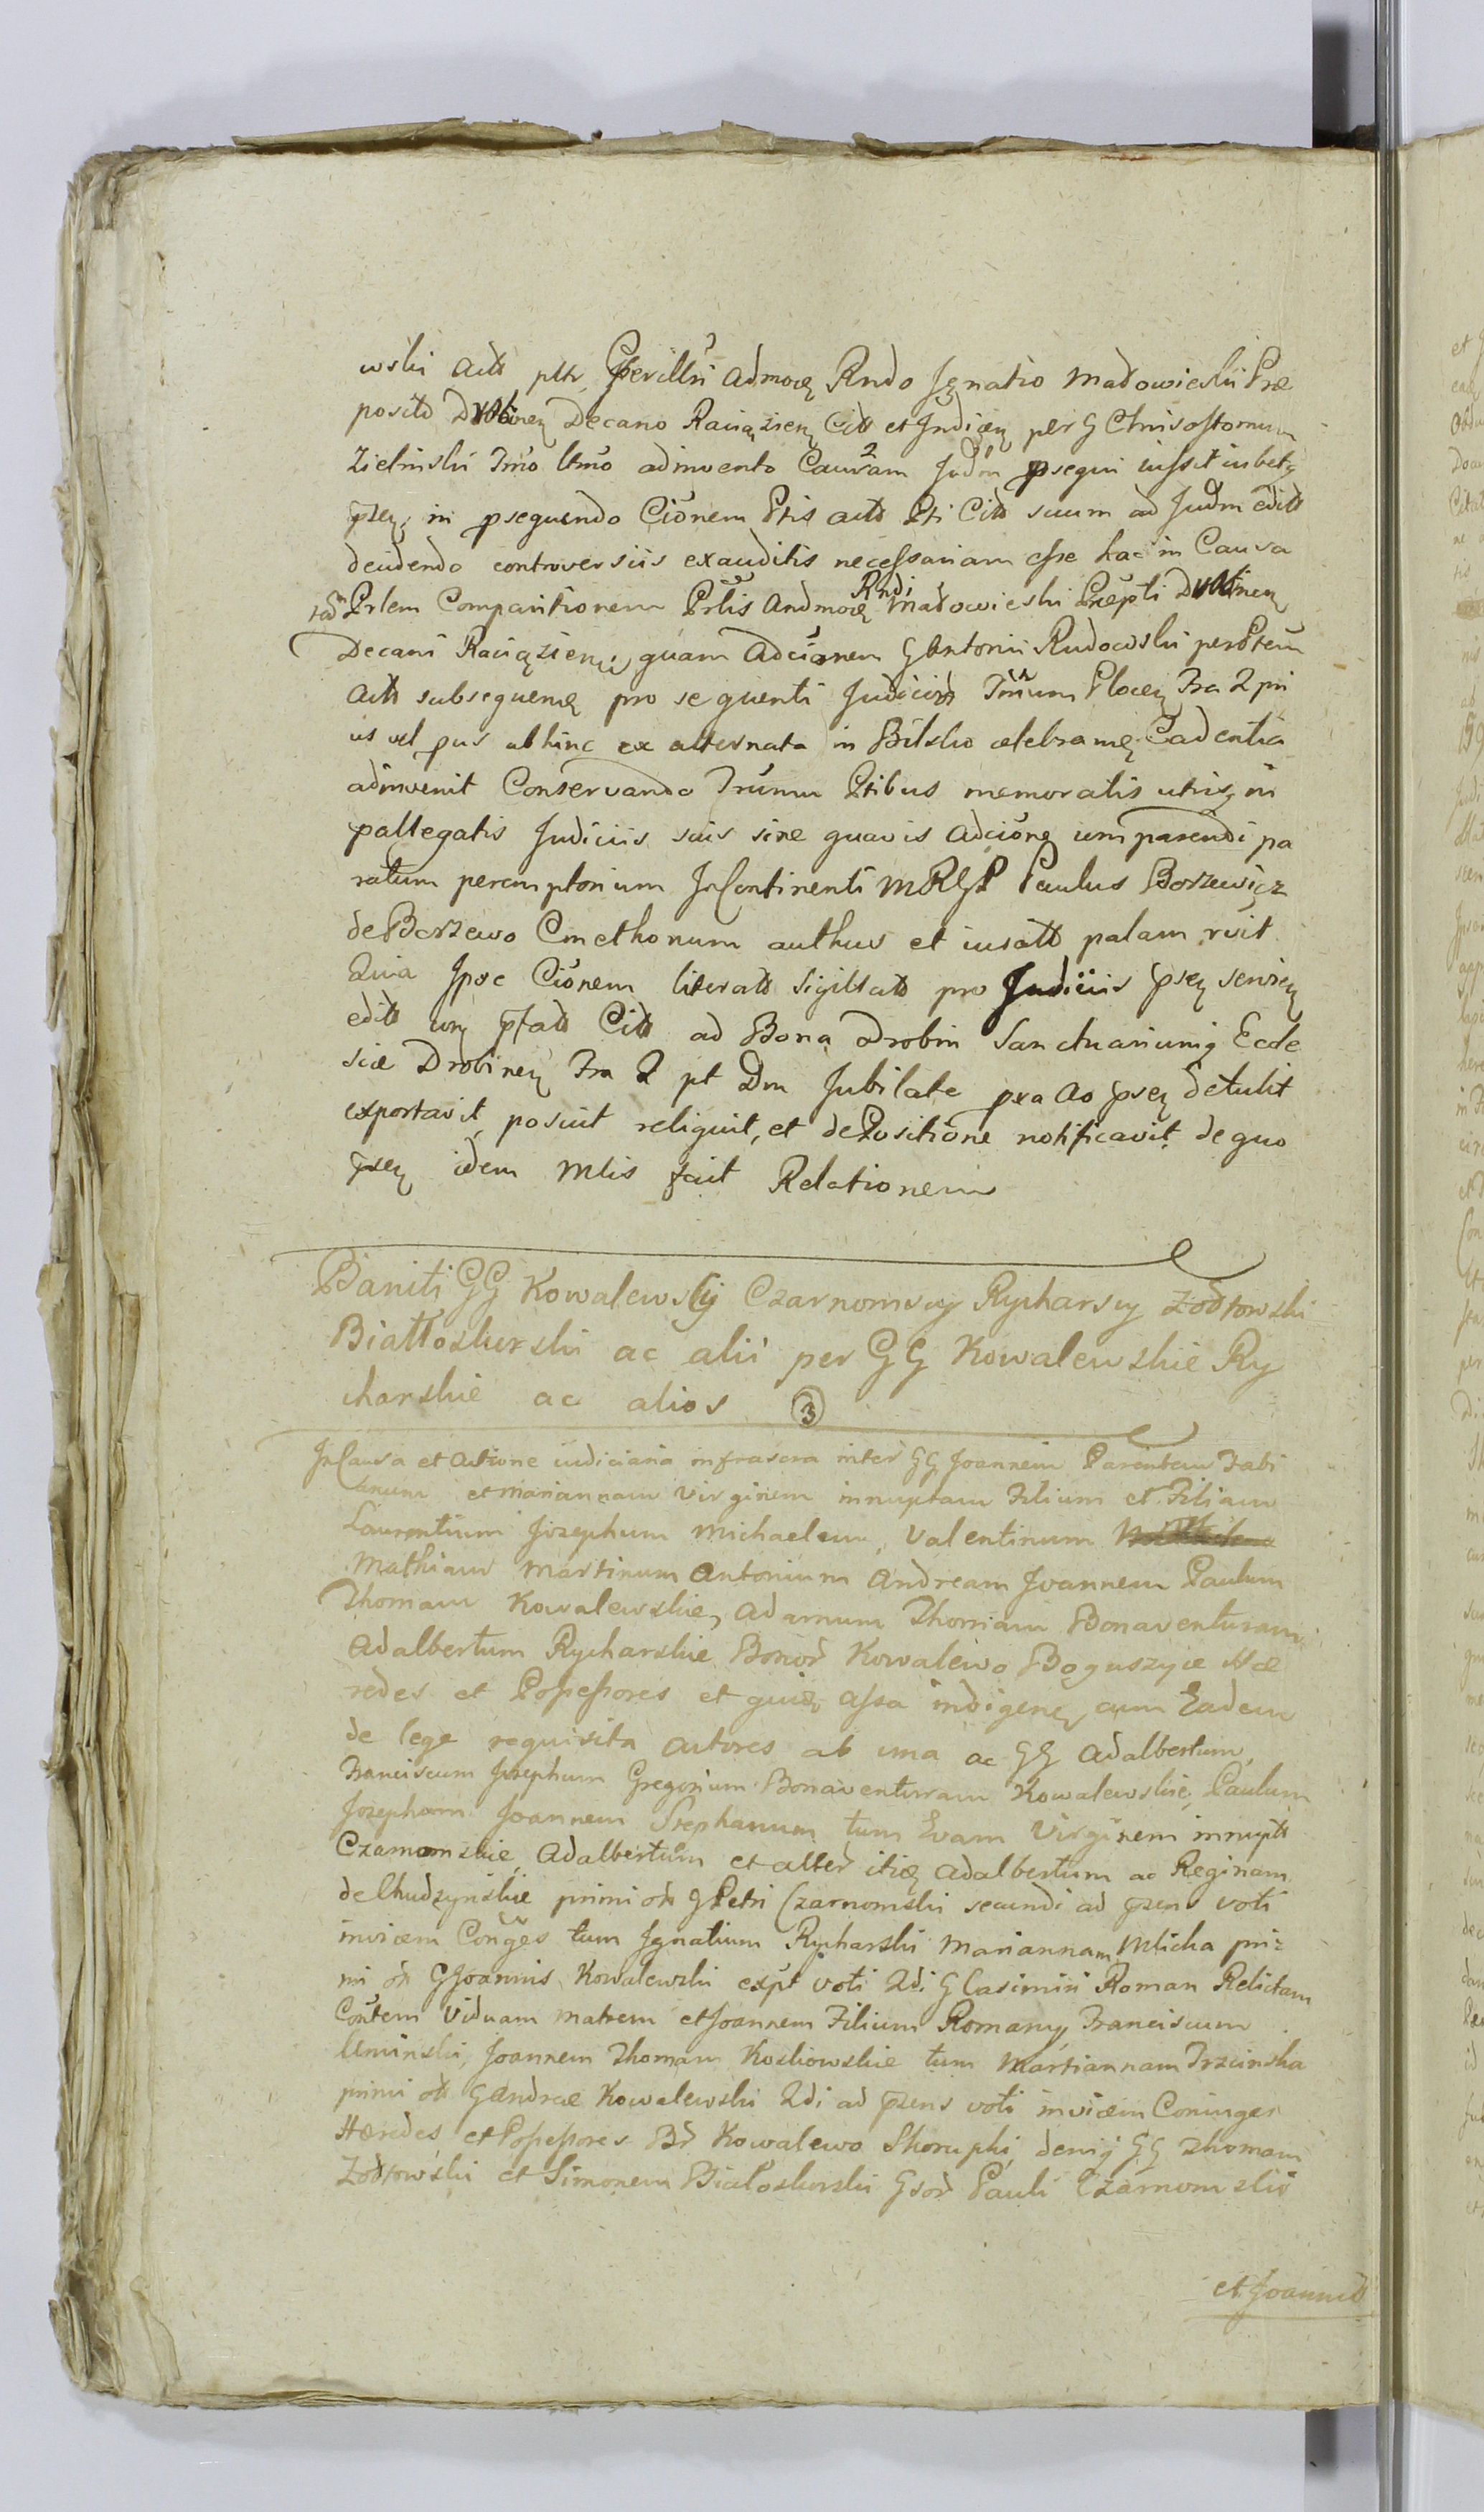 wski actt pltr Perillri admodę Rndo Ignatio Madowieski Præ
posito Drobineņ Decano Raciązieņ Citt et Indiceņ per G Chrisostomum
Zielinski Tmo Umo adinvento Causam Judm psequi iussit iubetq
pseņ, in psequendo Cionem Ptis actt Pti Citt suum ad Judm editt
decidendo controversiis exauditis necessariam esse hac in Causa
tad Prlem Comparitionem Prlis Andmodę Rndi Madowieski Præpti Drobineņ
Decani Raciązieņ, quam Adcionem G Antonii Rudowski per Ptem
actt subsequenę pro sequenti Judicior Trium Ploceņ Fra 2 pri
us vel pus abhinc ex alternata in Bilsko celebranę Cadentia
adinvenit Conservando Trūnum Ptibus memoratis utrisq in
pallegatis Judiciis suis sine quavis Adcione iem parendi pa
ratum peremptorium In Continenti MRGP Paulus Borzewicz
de Borzewo Cmethonum authus et iuratt palam rvit
Quia Ipse Cionem literatt Sigillatt pro Judiciis pseņ servieņ
editt in pfatt Citt ad Bona Drobin Sanctuariumq Eccle
siæ Drobineņ Fra 2 pt Dm Jubilate pxa Ao pseņ detulit
exportavit, posuit reliquit, et de Positione notificavit de quo
pseņ idem Mlis fecit Relationem
Baniti GG Kowalewscy Czarnomscy Rycharscy Zołtowski
Białłoskurski ac alii per GG Kowalewskie Ry
charskie ac alios ③
In Causa et Actione iudiciaria infrascra inter GG Joannem Parentem Fabi
anum et Mariannam Virginem innuptam Filium et Filiam
Laurentium Josephum Michaelem, Valentinum
Mathiam Martinum Antonium Andream Joannem Paulum
Thomam Kowalewskie, Adamum Thomam Bonaventuram
Adalbertum Rycharskie Bonor Kowalewo Boguszyce Hæ
redes et Possessores et assa indigeneņ cum Eadem
de lege requisita autores ab una ac GG Adalbertum,
Franciscum Josephum Gregorium Bonaventuram Kowalewskie, Paulum
Josephum Joannem Stephanum tum Evam Virginem innuptt
Czarnomskie, Adalbertum et alter itię Adalbertum ac Reginam
de Chudzynskie primi ott G Petri Czarnomski secundi ad psens voti
invicem Conges tum Ignatium Rycharski Mariannam Mlicka pri=
mi ott G Joannis Kowalewski expt voti 2di G Casimiri Roman Relictam
Contem Viduam Matrem et Joannem Filium Romany, Franciscum
Uminski, Joannem Thomam Koskowskie tum Martiannam Trzcinska
primi ott G Andreæ Kowalewski 2di ad psens voti invicem Coniuges
Hæredes et Possessores Br Kowalewo Skorupki, deniq GG Thomam
Zołtowski et Simonem Białoskurski Gsor Pauli Czarnomskie
et Joannis